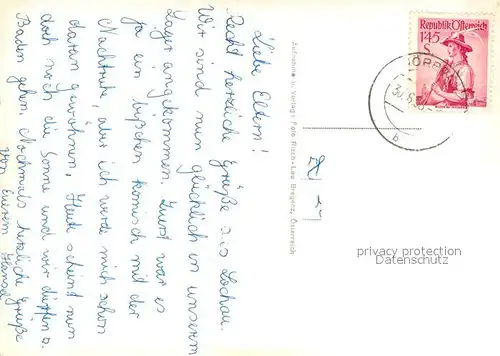 Liebe Eltern!
Recht herzliche Grüße aus Lochau.
Wir sind nun glücklich in unserem
Lager angekommen. Zuerst war es
ja ein bißchen komisch mit der
Nachtruhe, aber ich werde mich schon
daran gewöhnen. Heute scheint nun
doch noch die Sonne und wir dürfen z.
Baden gehen. Nochmals herzliche Grüße
von Eurem Hansel
Aufnahme u. Verlag: Foto Risch-Lau Bregenz, Österreich
Republik Österreich
1.45
S
b
privacy protection
Datenschutz